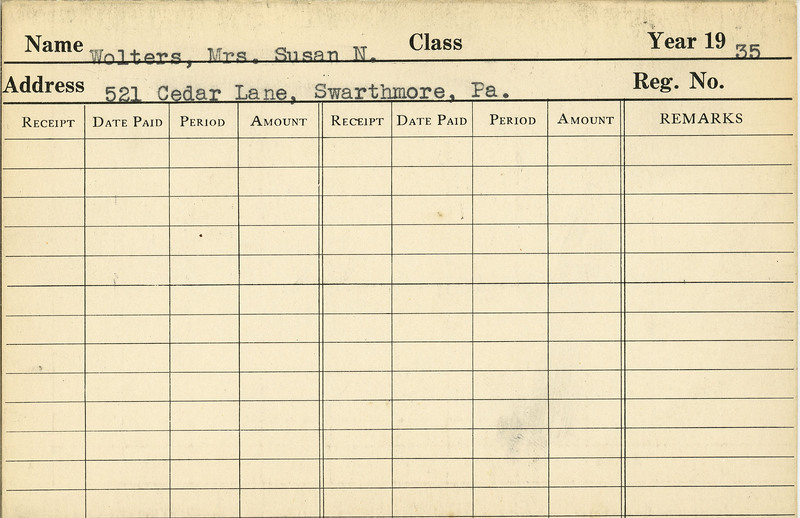 Name Wolters, Mrs. Susan N. Class Year 19 35
Address 521 Cedar Lane, Swarthmore, Pa. Reg. No.
RECEIPT DATE PAID PERIOD AMOUNT RECEIPT DATE PAID PERIOD AMOUNT REMARKS